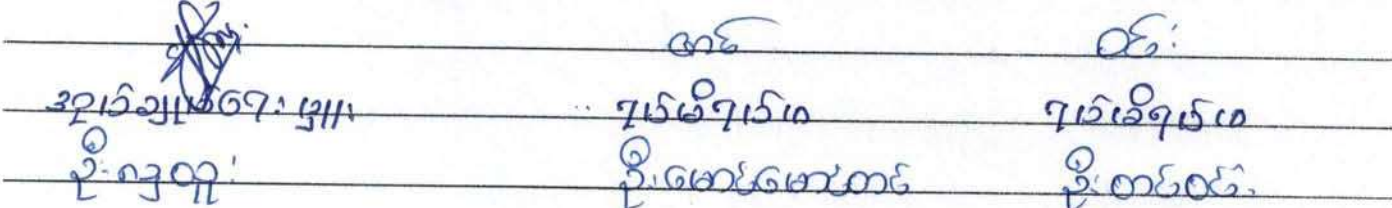 တင် ဝင်း
အုပ်ချုပ်ရေးမှူး ရပ်မိရပ်ဖ ရပ်မိရပ်ဖ
ဦး ဦးမောင်မောင်တင် ဦးတင်ဝင်း